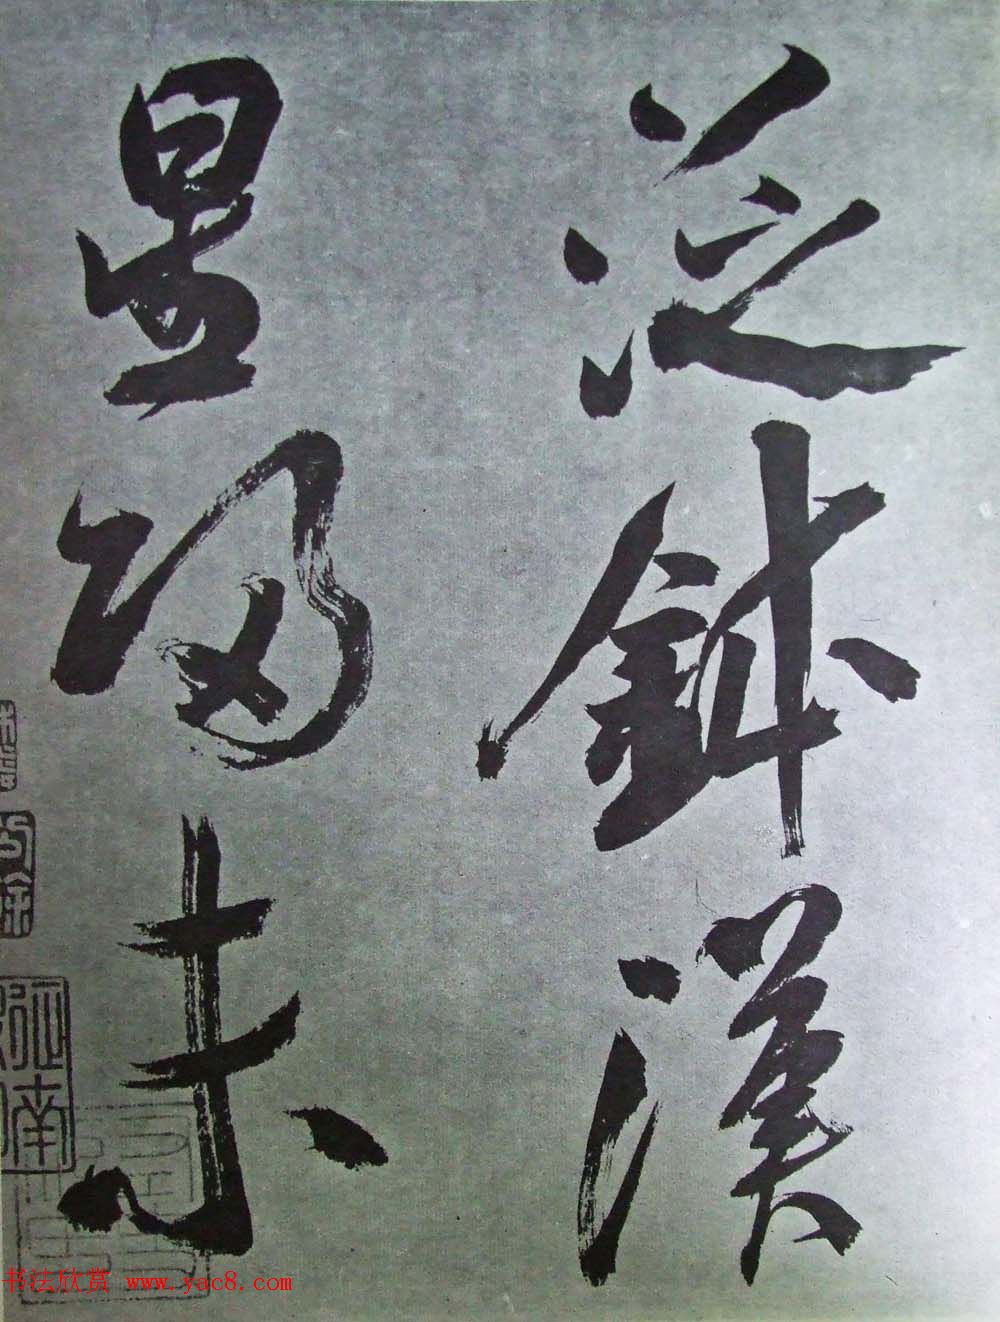 泛鉢漢
星歸未
书法欣赏 www.yac8.com